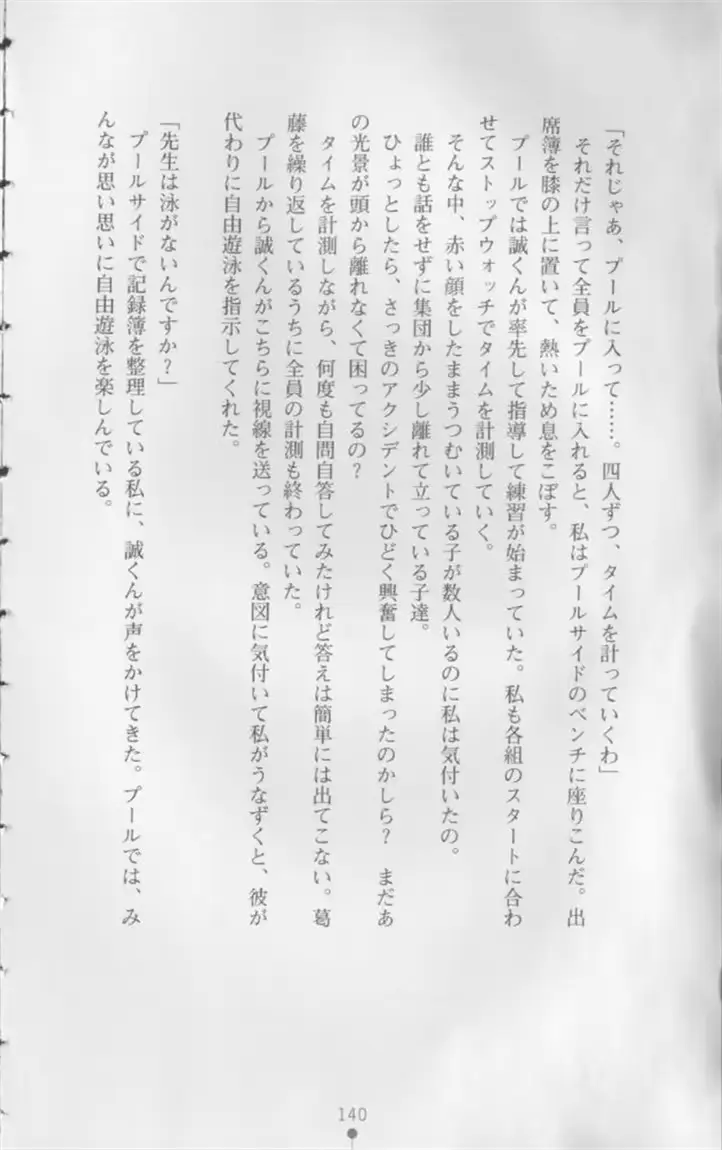 「それじゃあ、プールに入って……。四人ずつ、タイムを計っていくわ」
それだけ言って全員をプールに入れると、私はプールサイドのベンチに座りこんだ。出
席簿を膝の上に置いて、熱いため息をこぼす。
プールでは誠くんが率先して指導して練習が始まっていた。私も各組のスタートに合わ
せてストップウォッチでタイムを計測していく。
そんな中、赤い顔をしたままうつむいている子が数人いるのに私は気付いたの。
誰とも話をせずに集団から少し離れて立っている子達。
ひょっとしたら、さっきのアクシデントでひどく興奮してしまったのかしら？　まだあ
の光景が頭から離れなくて困ってるの？
タイムを計測しながら、何度も自問自答してみたけれど答えは簡単には出てこない。葛
藤を繰り返しているうちに全員の計測も終わっていた。
プールから誠くんがこちらに視線を送っている。意図に気付いて私がうなずくと、彼が
代わりに自由遊泳を指示してくれた。
「先生は泳がないんですか？」
プールサイドで記録簿を整理している私に、誠くんが声をかけてきた。プールでは、み
んなが思い思いに自由遊泳を楽しんでいる。
140